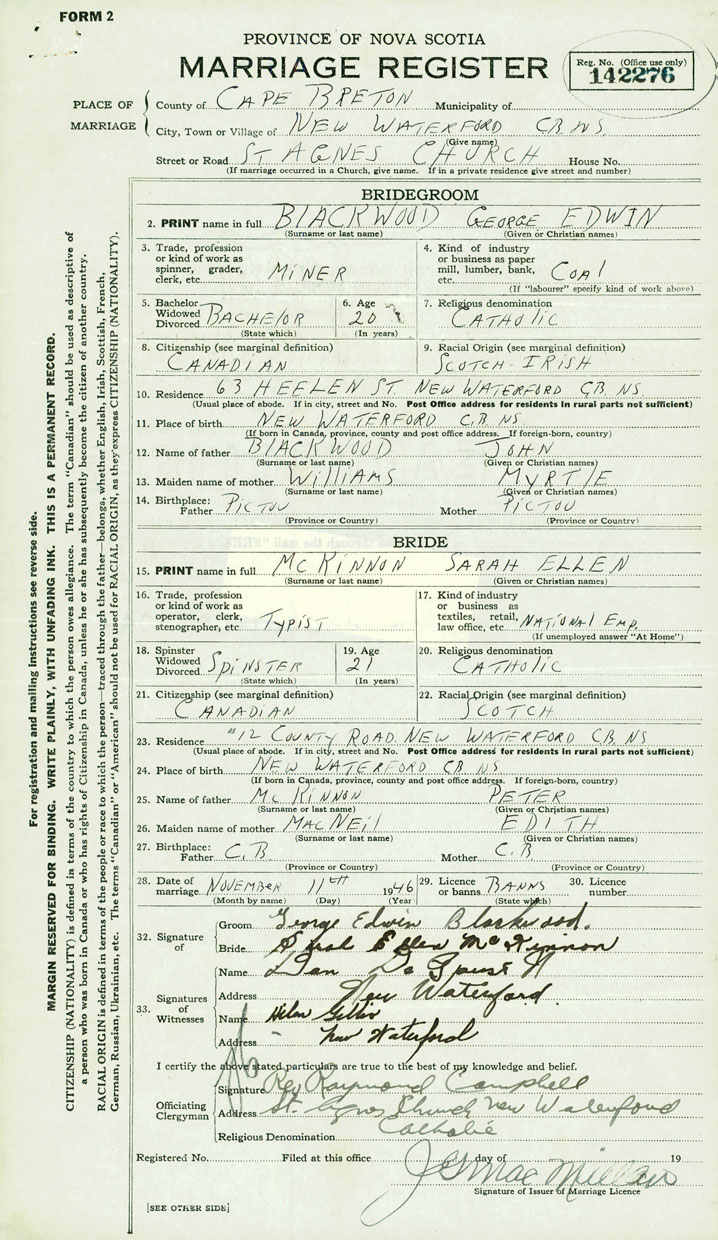 FORM 2
PROVINCE OF NOVA SCOTIA
MARRIAGE REGISTER
Reg. No. (Office use only)
142276
PLACE OF MARRIAGE
County of CAPE BRETON Municipality of
City, Town or Village of NEW WATERFORD C.B. N.S.
(Give name)
Street or Road ST AGNES CHURCH House No.
(If marriage occurred in a Church, give name. If in a private residence give street and number)
BRIDEGROOM
2. PRINT name in full BLACKWOOD GEORGE EDWIN
(Surname or last name) (Given or Christian names)
3. Trade, profession or kind of work as spinner, grader, clerk, etc. MINER
4. Kind of industry or business as paper mill, lumber, bank, etc. COAL
(If "labourer" specify kind of work above)
5. Bachelor Widowed Divorced BACHELOR
(State which)
6. Age 20
(In years)
7. Religious denomination
CATHOLIC
8. Citizenship (see marginal definition)
CANADIAN
9. Racial Origin (see marginal definition)
SCOTCH-IRISH
10. Residence 63 HEELEN ST NEW WATERFORD CB NS
(Usual place of abode. If in city, street and No. Post Office address for residents in rural parts not sufficient)
11. Place of birth NEW WATERFORD C.B. NS
(If born in Canada, province, county and post office address. If foreign-born, country)
12. Name of father BLACKWOOD JOHN
(Surname or last name) (Given or Christian names)
13. Maiden name of mother WILLIAMS MYRTLE
(Surname or last name) (Given or Christian names)
14. Birthplace: Father PICTOU Mother PICTOU
(Province or Country) (Province or Country)
BRIDE
15. PRINT name in full MCKINNON SARAH ELLEN
(Surname or last name) (Given or Christian names)
16. Trade, profession or kind of work as operator, clerk, stenographer, etc. TYPIST
17. Kind of industry or business as textiles, retail, law office, etc. NATIONAL EMP.
(If unemployed answer "At Home")
18. Spinster Widowed Divorced SPINSTER
(State which)
19. Age 21
(In years)
20. Religious denomination
CATHOLIC
21. Citizenship (see marginal definition)
CANADIAN
22. Racial Origin (see marginal definition)
SCOTCH
23. Residence #12 COUNTY ROAD NEW WATERFORD C.B. NS
(Usual place of abode. If in city, street and No. Post Office address for residents in rural parts not sufficient)
24. Place of birth NEW WATERFORD CB NS
(If born in Canada, province, county and post office address. If foreign-born, country)
25. Name of father MCKINNON PETER
(Surname or last name) (Given or Christian names)
26. Maiden name of mother MACNEIL EDITH
(Surname or last name) (Given or Christian names)
27. Birthplace: Father C.B. Mother C.B.
(Province or Country) (Province or Country)
28. Date of marriage NOVEMBER 11TH 1946
(Month by name) (Day) (Year)
29. Licence or banns BANNS
(State which)
30. Licence number
32. Signature of
Groom George Edwin Blackwood.
Bride Sarah Ellen McKinnon
33. Signatures of Witnesses
Name Dan
Address New Waterford
Name Helen
Address New Waterford
I certify the above stated particulars are true to the best of my knowledge and belief.
Officiating Clergyman
Signature Rev Raymond Campbell
Address St. Agnes Church New Waterford
Religious Denomination Catholic
Registered No. Filed at this office day of 19
MacMillan
Signature of Issuer of Marriage Licence
[SEE OTHER SIDE]
For registration and mailing instructions see reverse side.
MARGIN RESERVED FOR BINDING. WRITE PLAINLY, WITH UNFADING INK. THIS IS A PERMANENT RECORD.
CITIZENSHIP (NATIONALITY) is defined in terms of the country to which the person owes allegiance. The term "Canadian" should be used as descriptive of
a person who was born in Canada or who has rights of Citizenship in Canada, unless he or she has subsequently become the citizen of another country.
RACIAL ORIGIN is defined in terms of the people or race to which the person—traced through the father—belongs, whether English, Irish, Scottish, French,
German, Russian, Ukrainian, etc. The terms "Canadian" or "American" should not be used for RACIAL ORIGIN, as they express CITIZENSHIP (NATIONALITY).